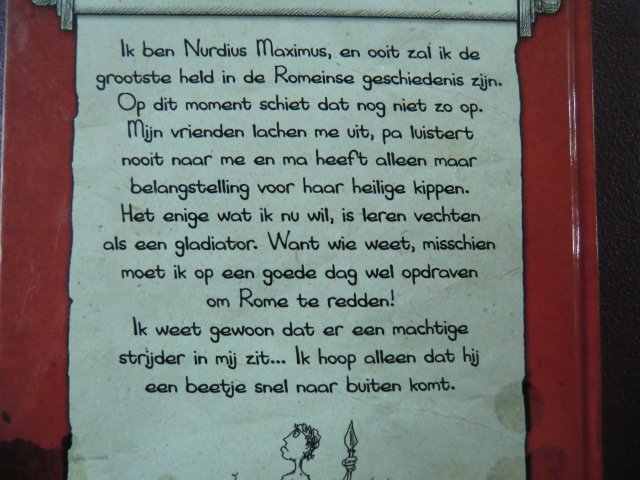 Ik ben Nurdius Maximus, en ooit zal ik de
grootste held in de Romeinse geschiedenis zijn.
Op dit moment schiet dat nog niet zo op.
Mijn vrienden lachen me uit, pa luistert
nooit naar me en ma heeft alleen maar
belangstelling voor haar heilige kippen.
Het enige wat ik nu wil, is leren vechten
als een gladiator. Want wie weet, misschien
moet ik op een goede dag wel opdraven
om Rome te redden!
Ik weet gewoon dat er een machtige
strijder in mij zit... Ik hoop alleen dat hij
een beetje snel naar buiten komt.